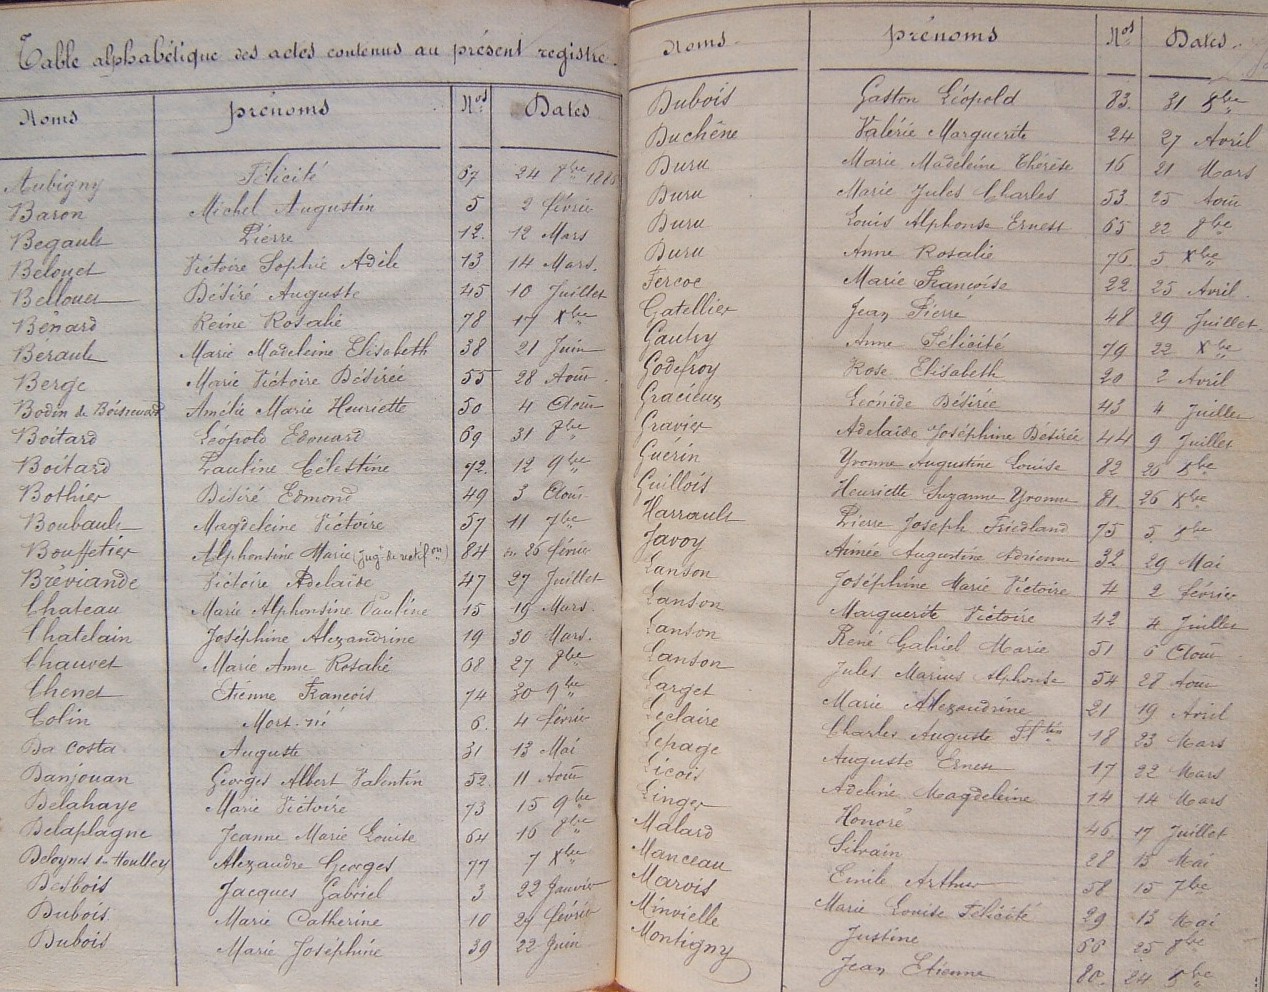 Table alphabétique des actes contenus au présent registre.
Noms prénoms Nos Dates
Aubigny Félicité 67 24 8bre 1886
Baron Michel Augustin 5 2 février
Begault Pierre 12. 12 Mars
Belouet Victoire Sophie Adèle 13 14 Mars.
Bellouet Désiré Auguste 45 10 Juillet
Bénard Reine Rosalie 78 17 Xbre
Bérault Marie Madeleine Elisabeth 38 21 Juin
Berge Marie Victoire Désirée 55 28 Août.
Bodin de Boisrenard Amélie Marie Henriette 50 4 Août
Boitard Léopold Edouard 69 31 8bre
Boitard Pauline Célestine 72. 12 9bre
Bothier Désiré Edmond 49 3 Août
Boubault Magdeleine Victoire 57 11 7bre
Bouffetier Alphonsine Marie (jugt de rectifon) 84 26 février
Bréviande Victoire Adelaide 47 27 Juillet
Chateau Marie Alphonsine Pauline 15 19 Mars.
Chatelain Joséphine Alexandrine 19 30 Mars.
Chauvet Marie Anne Rosalie 68 27 8bre
Chenet Etienne François 74 30 9bre
Colin Mort-né 6. 4 février
Da costa Auguste 31 13 Mai
Danjouan Georges Albert Valentin 52 11 Août
Delahaye Marie Victoire 73 15 9bre
Delaplagne Jeanne Marie Louise 64 16 8bre
Deloynes du Houlley Alexandre Georges 77 7 Xbre
Desbois Jacques Gabriel 3 22 Janvier
Dubois Marie Catherine 10 27 février
Dubois Marie Joséphine 39 22 Juin
Noms. prénoms Nos Dates.
Dubois Gaston Léopold 83. 31 Xbre
Duchêne Valérie Marguerite 24 27 Avril
Duru Marie Madeleine Thérèse 16 21 Mars
Duru Marie Jules Charles 53 25 Août
Duru Louis Alphonse Ernest 65 22 8bre
Duru Anne Rosalie 76 5 Xbre
Fercoc Marie Françoise 22 25 Avril.
Gatellier Jean Pierre 48 29 Juillet.
Gautry Anne Félicité 79 22 Xbre
Godefroy Rose Elisabeth 20 2 Avril
Gracieux Léonide Désirée 43 4 Juillet
Gravier Adelaide Joséphine Désirée 44 9 Juillet
Guérin Yvonne Augustine Louise 82 26 Xbre
Guillois Henriette Suzanne Yvonne 81. 26 Xbre
Harrault Pierre Joseph Friedland 75 5 Xbre
Javoy Aimée Augustine Adrienne 32 29 Mai
Lanson Joséphine Marie Victoire 4 2 février
Lanson Marguerite Victoire 42 4 Juillet
Lanson René Gabriel Marie 51 6 Août
Lanson Jules Marius Alphonse 54 28 Août
Larget Marie Alexandrine 21 19 Avril
Leclaire Charles Auguste 18 23 Mars
Lepage Auguste Ernest 17 22 Mars
Licois Adeline Magdeleine 14 14 Mars
Linger Honoré 46. 17 Juillet
Malard Silvain 28 15 Mai
Manceau Emile Arthur 58 15 7bre
Marois Marie Louise Félicité 29 13 Mai
Minvielle Justine 66 25 8bre
Montigny Jean Etienne 80. 24 Xbre